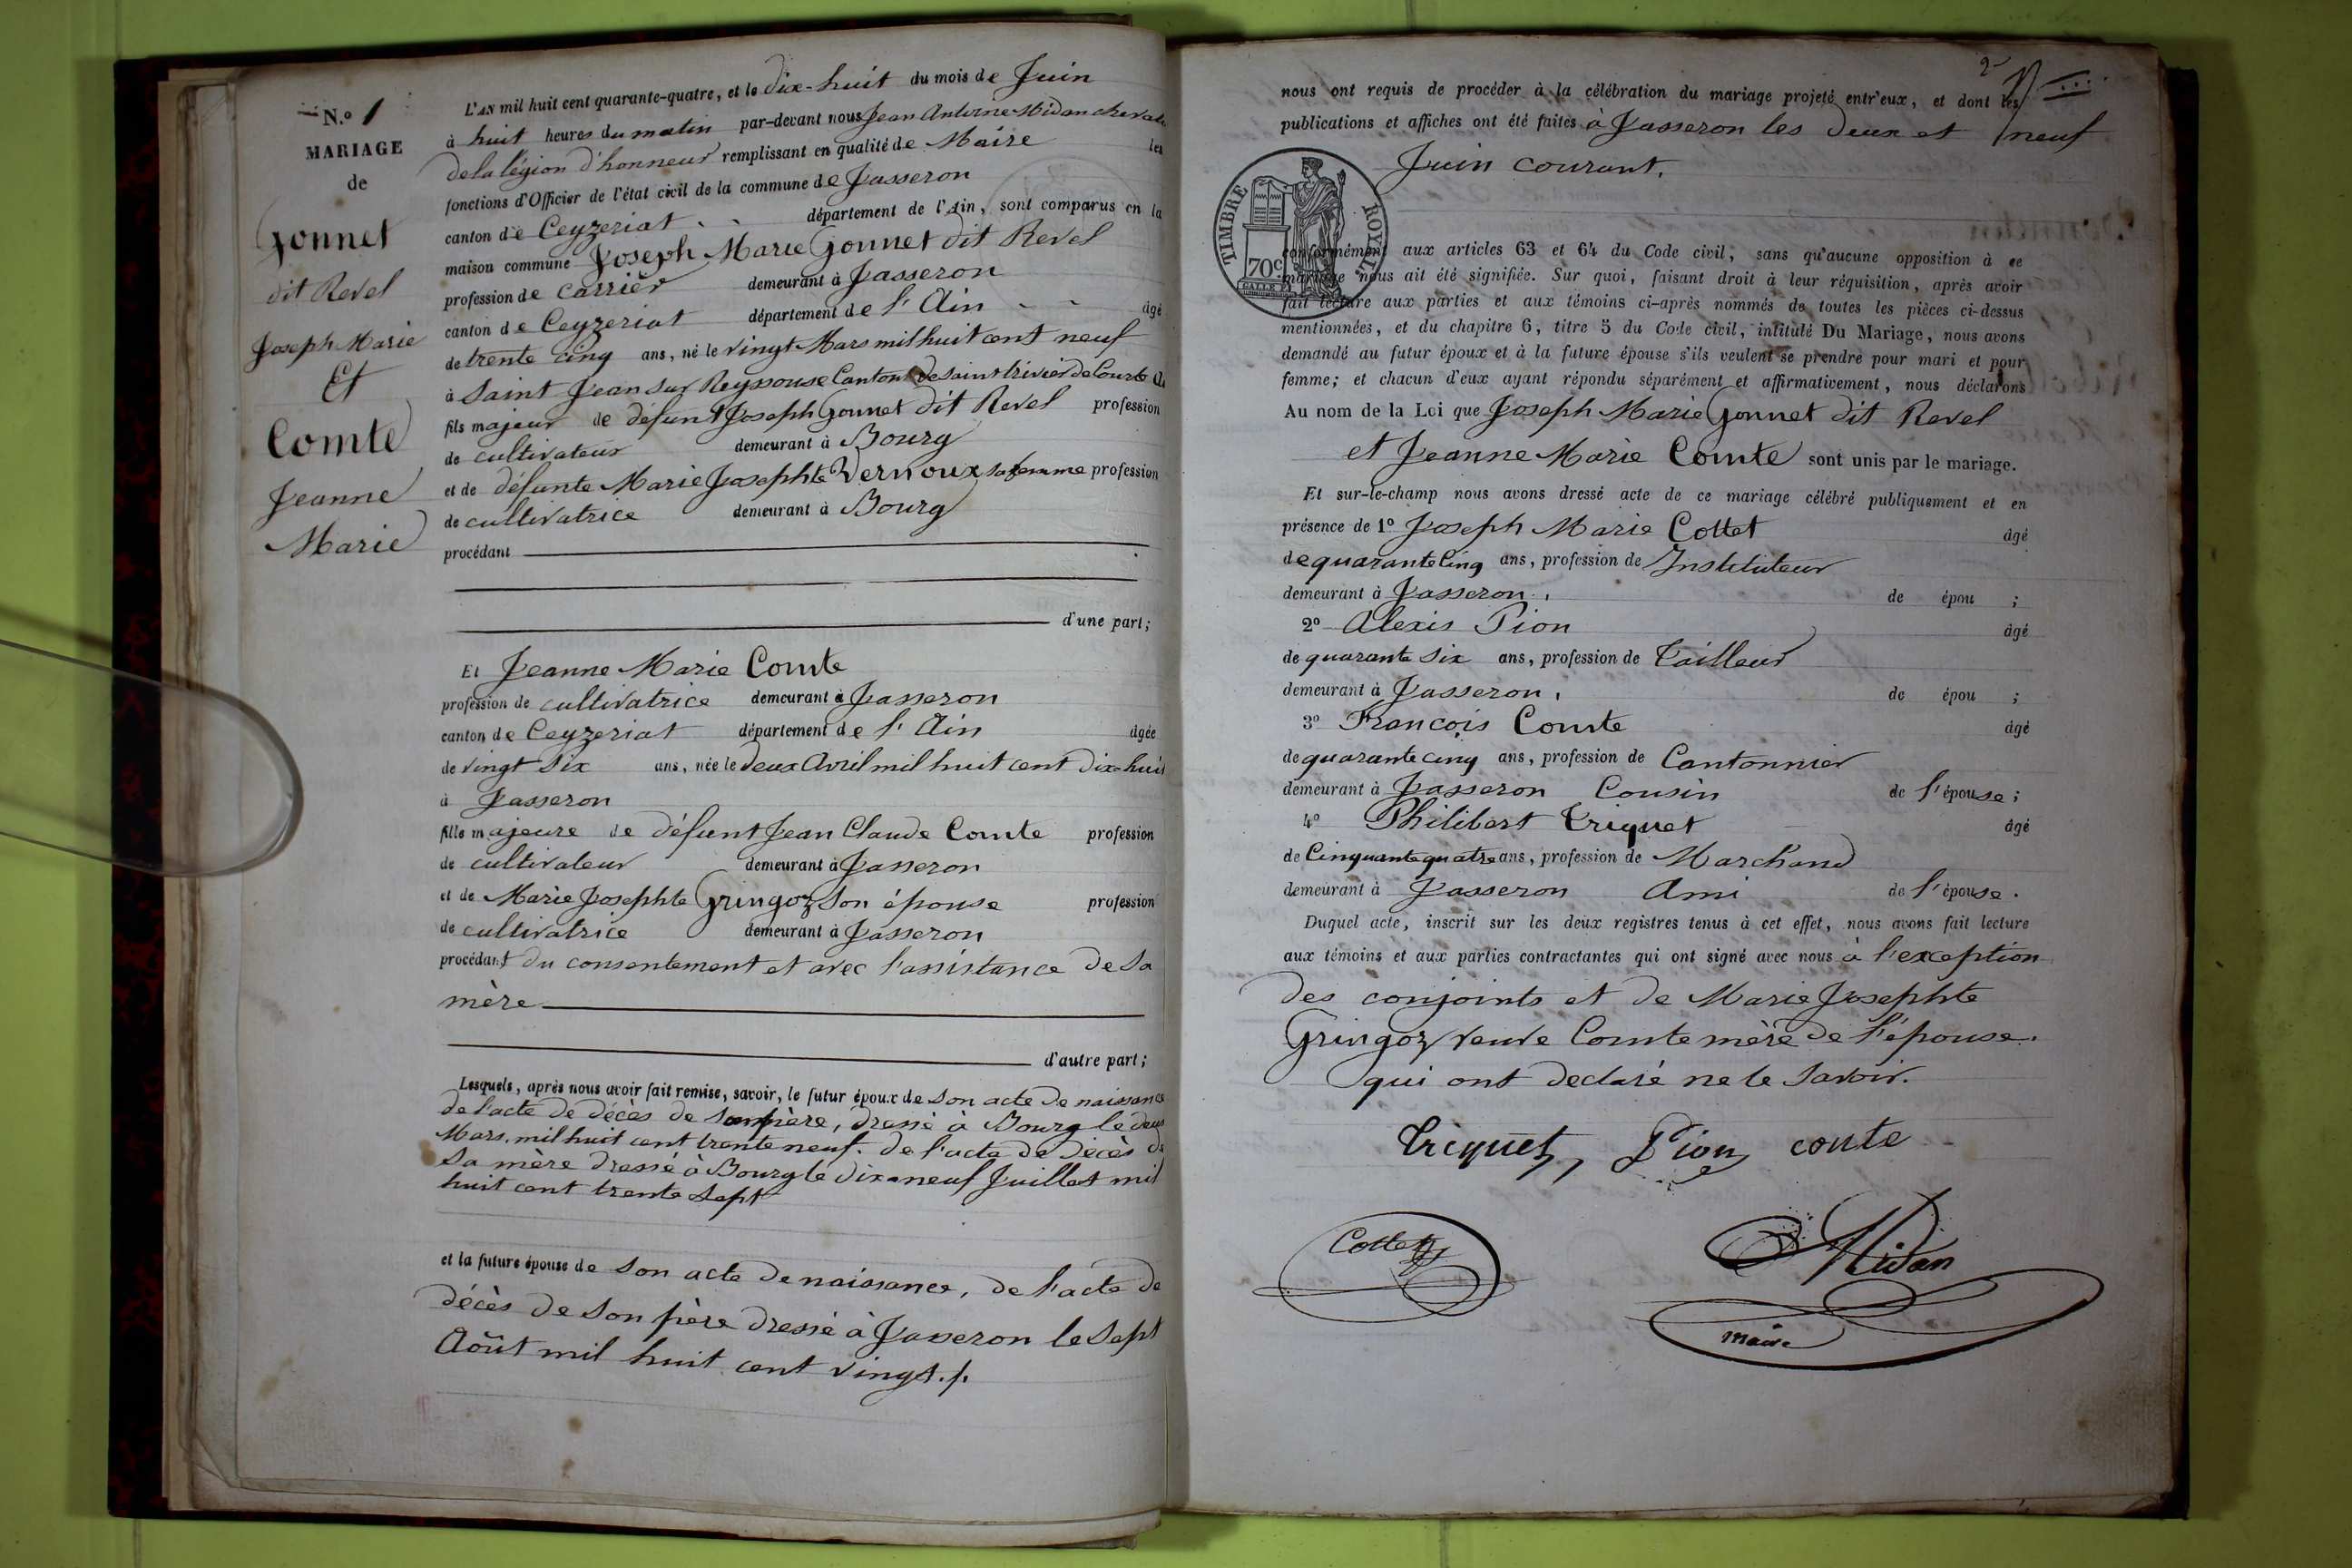 N.º 1
MARIAGE
de
Gonnet
dit Revel
Joseph Marie
Et
Comte
Jeanne
Marie
L'AN mil huit cent quarante-quatre, et le dix-huit du mois de Juin
à huit heures du matin par-devant nous Jean Antoine Midan chevalier
de la légion d'honneur remplissant en qualité de Maire les
fonctions d'Officier de l'état civil de la commune de Jasseron
canton de Ceyzeriat département de l'Ain, sont comparus en la
maison commune Joseph Marie Gonnet dit Revel
profession de carrier demeurant à Jasseron
canton de Ceyzeriat département de l'Ain âgé
de trente cinq ans, né le vingt Mars mil huit cent neuf
à Saint Jean sur Reyssouse Canton de Saint trivier de Courte
fils majeur de défunt Joseph Gonnet dit Revel profession
de cultivateur demeurant à Bourg
et de défunte Marie Josephte Vernoux sa femme profession
de cultivatrice demeurant à Bourg
procédant
d'une part;
Et Jeanne Marie Comte
profession de cultivatrice demeurant à Jasseron
canton de Ceyzeriat département de l'Ain âgée
de vingt six ans, née le deux Avril mil huit cent dix-huit
à Jasseron
fille majeure de défunt Jean Claude Comte profession
de cultivateur demeurant à Jasseron
et de Marie Josephte Gringoz son épouse profession
de cultivatrice demeurant à Jasseron
procédant du consentement et avec l'assistance de sa
mère
d'autre part;
Lesquels, après nous avoir fait remise, savoir, le futur époux de son acte de naissance
de l'acte de décès de son père, dressé à Bourg le deux
Mars, mil huit cent trente neuf. de l'acte de décès de
sa mère dressé à Bourg le dix neuf Juillet mil
huit cent trente sept
et la future épouse de son acte de naissance, de l'acte de
décès de son père dressé à Jasseron le sept
Août mil huit cent vingt./.
2
nous ont requis de procéder à la célébration du mariage projeté entr'eux, et dont les
publications et affiches ont été faites à Jasseron les deux et neuf
Juin courant.
TIMBRE ROYAL
70c
conformément aux articles 63 et 64 du Code civil, sans qu'aucune opposition à ce
mariage nous ait été signifiée. Sur quoi, faisant droit à leur réquisition, après avoir
fait lecture aux parties et aux témoins ci-après nommés de toutes les pièces ci-dessus
mentionnées, et du chapitre 6, titre 5 du Code civil, intitulé Du Mariage, nous avons
demandé au futur époux et à la future épouse s'ils veulent se prendre pour mari et pour
femme; et chacun d'eux ayant répondu séparément et affirmativement, nous déclarons
Au nom de la Loi que Joseph Marie Gonnet dit Revel
et Jeanne Marie Comte sont unis par le mariage.
Et sur-le-champ nous avons dressé acte de ce mariage célébré publiquement et en
présence de 1º Joseph Marie Cottet âgé
de quarante cinq ans, profession de Instituteur
demeurant à Jasseron, de épou ;
2º Alexis Pion âgé
de quarante six ans, profession de Tailleur
demeurant à Jasseron, de épou ;
3º François Comte âgé
de quarante cinq ans, profession de Cantonnier
demeurant à Jasseron Cousin de l'épouse;
4º Philibert Triquet âgé
de Cinquante quatre ans, profession de Marchand
demeurant à Jasseron Ami de l'épouse.
Duquel acte, inscrit sur les deux registres tenus à cet effet, nous avons fait lecture
aux témoins et aux parties contractantes qui ont signé avec nous à l'exception
des conjoints et de Marie Josephte
Gringoz veuve Comte mère de l'épouse.
qui ont declaré ne le savoir.
Triquet, Pion conte
Cottet Midan
maire